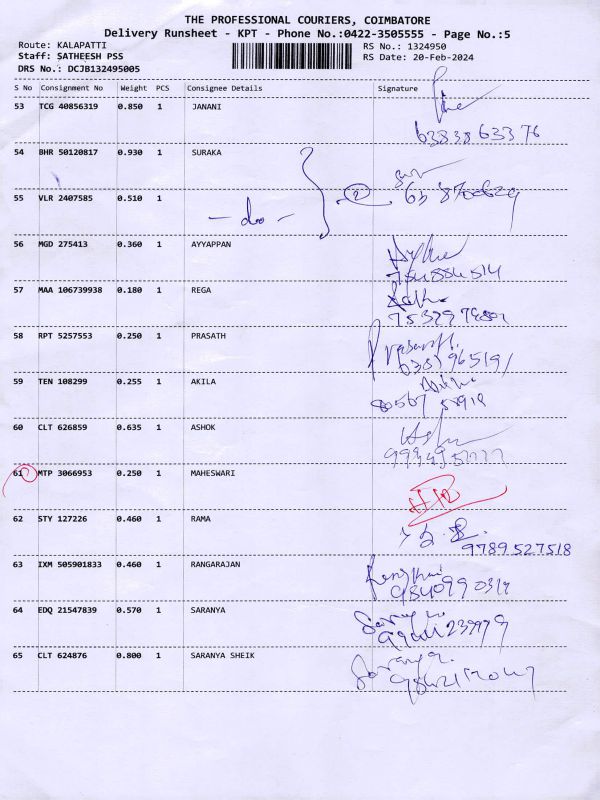 THE PROFESSIONAL COURIERS, COIMBATORE
Delivery Runsheet - KPT - Phone No.:0422-3505555 - Page No.:5
Route: KALAPATTI RS No.: 1324950
Staff: SATHEESH PSS RS Date: 20-Feb-2024
DRS No.: DCJB132495005
S No Consignment No Weight PCS Consignee Details Signature
53 TCG 40856319 0.850 1 JANANI
63838 63376
54 BHR 50120817 0.930 1 SURAKA
55 VLR 2407585 0.510 1 - do - 2
56 MGD 275413 0.360 1 AYYAPPAN
57 MAA 106739938 0.180 1 REGA
58 RPT 5257553 0.250 1 PRASATH
59 TEN 108299 0.255 1 AKILA
60 CLT 626859 0.635 1 ASHOK
61 MTP 3066953 0.250 1 MAHESWARI
62 STY 127226 0.460 1 RAMA
9789527518
63 IXM 505901833 0.460 1 RANGARAJAN
64 EDQ 21547839 0.570 1 SARANYA
65 CLT 624876 0.800 1 SARANYA SHEIK